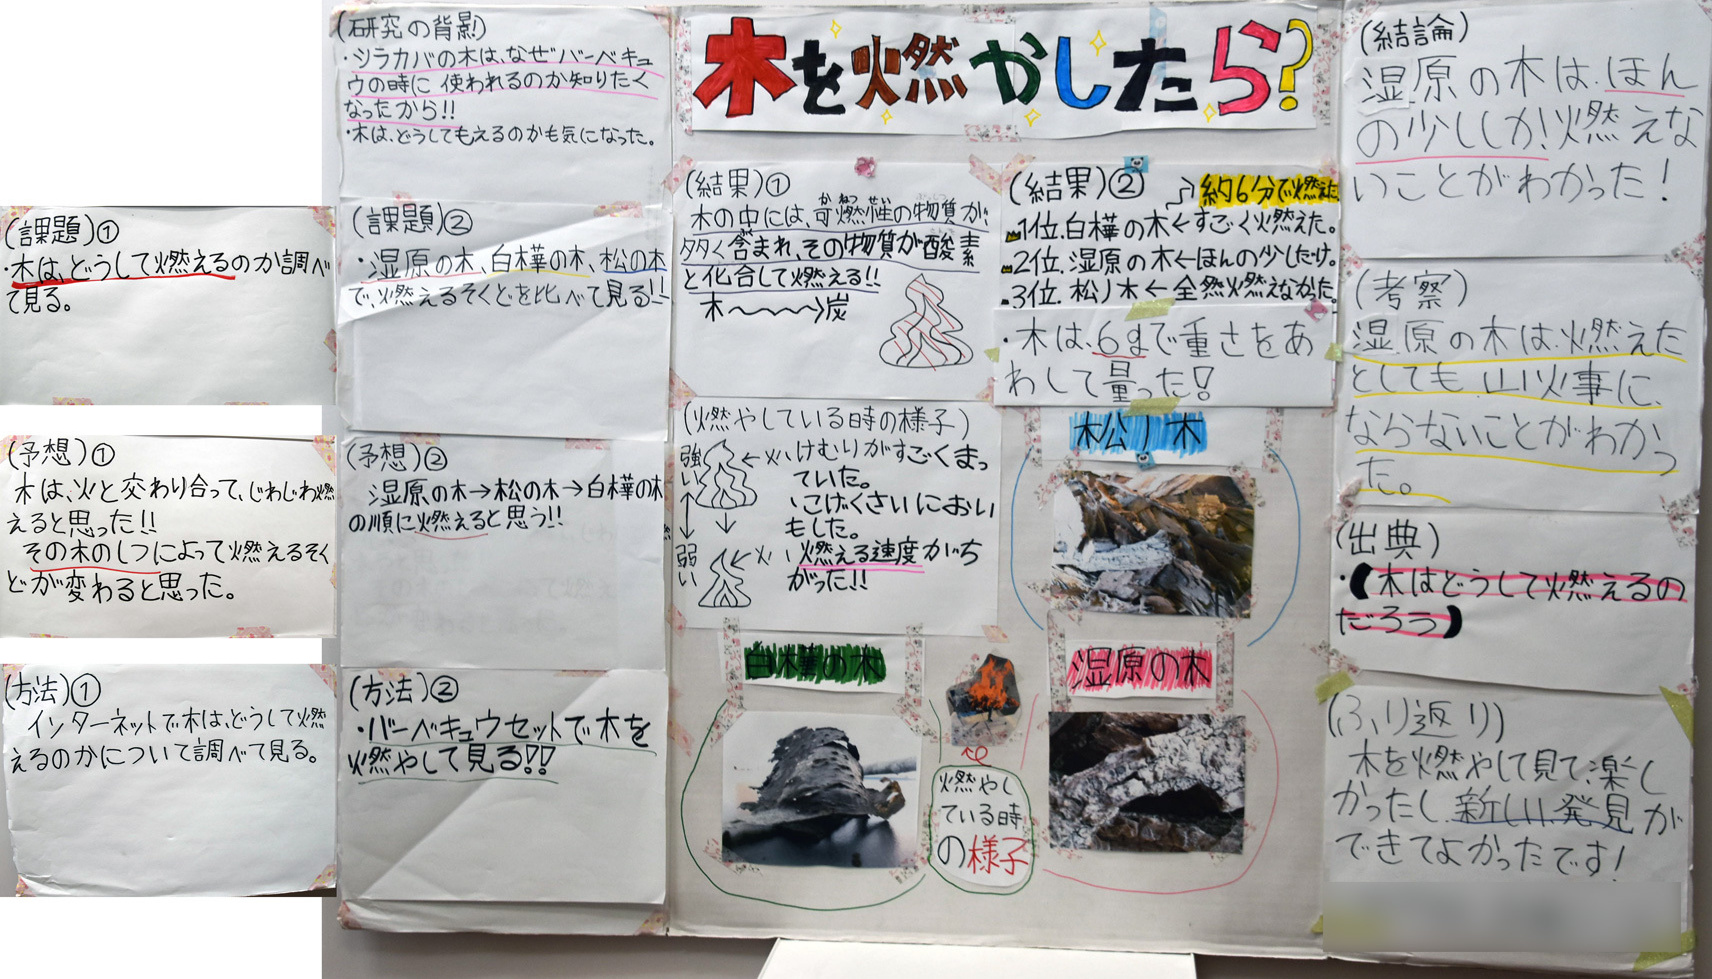 木を燃やしたら?
(研究の背景)
・シラカバの木は、なぜバーベキュ
ウの時に使われるのか知りたく
なったから!!
・木は、どうしてもえるのかも気になった。
(課題)①
・木は、どうして燃えるのか調べ
て見る。
(課題)②
・湿原の木、白樺の木、松の木
で、燃えるそくどを比べて見る!!
(予想)①
木は、火と交わり合って、じわじわ燃
えると思った!!
その木のしつによって燃えるそく
どが変わると思った。
(予想)②
湿原の木→松の木→白樺の木
の順に燃えると思う!!
(方法)①
インターネットで木は、どうして燃
えるのかについて調べて見る。
(方法)②
・バーベキュウセットで木を
燃やして見る!!
(結果)①
かねんせい ぶっしつ
木の中には、可燃性の物質が、
多く含まれ、その物質が酸素
と化合して燃える!!
木〜〜〜→炭
(結果)②
約6分で燃えた
1位.白樺の木←すごく燃えた。
2位.湿原の木←ほんの少しだけ。
3位.松ノ木←全然燃えなかった。
・木は、6gで重さをあ
わして量った!
(燃やしている時の様子)
強い
弱い
←火
←火
、けむりがすごくまっ
ていた。
、こげくさいにおい
もした。
、燃える速度がち
がった!!
松ノ木
白樺の木
湿原の木
燃やし
ている時
の様子
(結論)
湿原の木は、ほん
の少ししか!燃えな
いことがわかった!
(考察)
湿原の木は、燃えた
としても、山火事に、
ならないことがわかっ
た。
(出典)
・(木はどうして燃えるの
だろう)
(ふり返り)
木を燃やして見て、楽し
かったし、新しい発見が
できてよかったです!